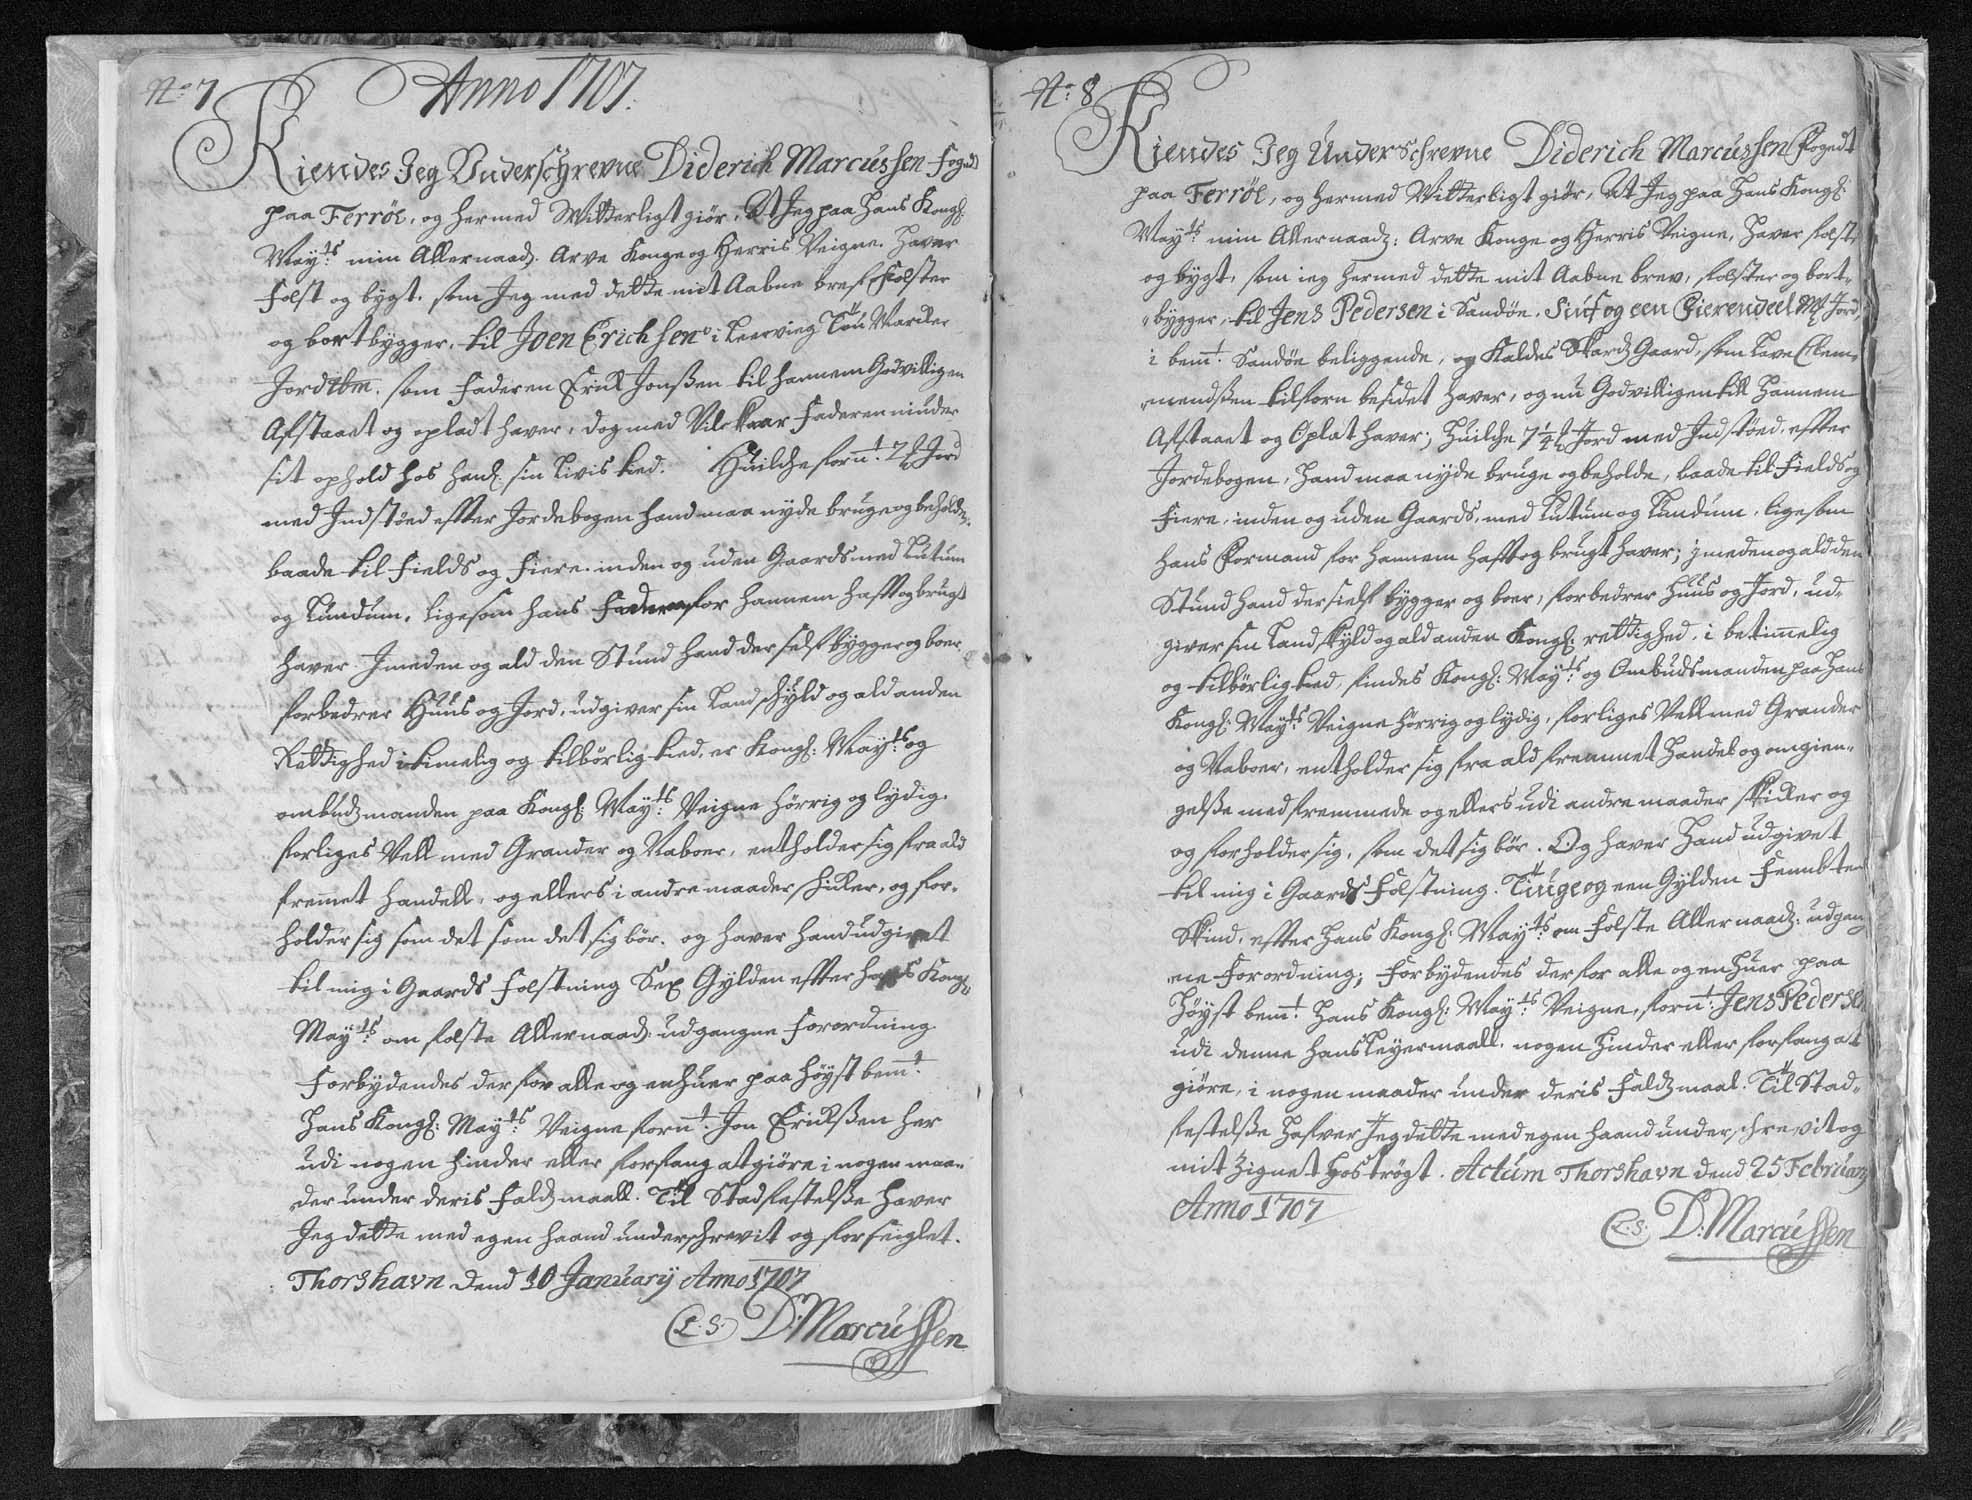 No 7 Anno 1707.
Kiendes Jeg Underschrevne Diderich Marcussen Foged
paa Ferröe, og hermed Witterligt giör, At Jeg paa Hans Kongl:
Mayts: min Allernaad: Arve Konge og Herris Veigne. Haver
Fæst og bygt, som Jeg med dette mit Aabne bref Fæster
og bortbygger, til Joen Erichsen i Leervieg Tou Marcker
Jord ibm: som Faderen Erick Jonsßen til hannem Godvilligen
Afstaaet og opladt haver, dog med Vilckaar Faderen niuder
sit ophold hos hand: sin Livis tied. Huilche fornt: 2 Jord
med Indstöed effter Jordebogen hand maa nyde bruge og beholde.
baade til Fields og Fiere. inden og uden Gaards med Lutum
og Lundum, ligesom hans Fader for hannem hafft og brugt
haver. Jmeden og ald den Stund hand der self bygger og boer
forbedrer Huus og Jord, udgiver sin Landschyld og ald anden
Rettighed i timelig og tilbörlig tied, er Kongl: Mayts: og
ombudzmanden paa Kongl: Mayts: Veigne hörrig og lydig.
forliges Vell med Grander og Naboer, entholder sig fra ald
fremmet Handell, og ellers i andre maader schicker, og for-
holder sig som det som det sig bör. og haver hand udgivet
til mig i Gaards Fæstning Sex Gylden effter hans Kongl:
Mayts: om fæste Allernaad: udgangne Forordning.
Forbydendes derfor alle og enhuer paa Höyst bemt:
Hans Kongl: Mayts: Veigne fornt: Jon Ericksßen her
udi nogen hinder eller forfang at giöre i nogen maa-
der under deris Faldzmaall. Til Stadfestelsße haver
Jeg dette med egen haand underschrevit og forseiglet.
Thorshavn dend 10 January Anno 1707
L.S. D: Marcussen
No: 8
Kiendes Jeg Underschrevne Diderich Marcussen Fogedt
paa Ferröe, og hermed Witterligt giör, At Jeg paa Hans Kongl:
Mayts: min Allernaadz: Arve Konge og Herris Veigne, Haver fæst
og bygt, som ieg hermed dette mit Aabne brev, fæster og bort-
bygger, til Jens Pedersen i Sandöe. Siuf og een Fierendeel Mk Jord,
i bemt: Sandöe beliggende, og Kaldes Skardz Gaard, som Lave Clem-
mendsßen tilforn besidet haver, og nu Godvilligen till Hannem
Afstaaet og Oplat haver; Huilche 7 1/4 Jord med Indstöed, effter
Jordebogen, Hand maa nyde bruge og beholde, baade til Fields og
Fiere, inden og uden Gaards, med Lutum og Lundum, ligesom
hans Formand for hannem hafft og brugt haver; jmeden og ald den
Stund hand der sielf bygger og boer, forbedrer Huus og Jord, ud-
giver sin Landskyld og ald anden Kongl: rettighed, i betimelig
og tilbörlig tied, findes Kongl: Mayts: og Ombudsmanden paa Hans
Kongl: Mayts: Veigne hörrig og lydig, forliges Vell med Grander
og Naboer, entholder sig fra ald fremmet Handel og omgien-
gelsße med fremmede og ellers udi andre maader skicker og
og forholder sig, som det sig bör. Og haver Hand udgivet
til mig i Gaards Fæstning. Tiuge og een Gylden Femb ten
Skind, effter Hans Kongl: Mayts: om Fæste Allernaadz: udgan
ene Forordning; Forbydendes derfor alle og en huer paa
Höyst bemt: Hans Kongl: Mayts: Veigne, fornt: Jens Pedersen
udi denne hans Leyermaall, nogen hinder eller forfang at
giöre, i nogen maader under deris Faldzmaal. Til Stad-
festelsße Hafver Jeg dette med egen haand underschrevit og
mit Zignet hos trögt. Actum Thorshavn dend 25 Februarj
Anno 1707
L.S. D: Marcussen